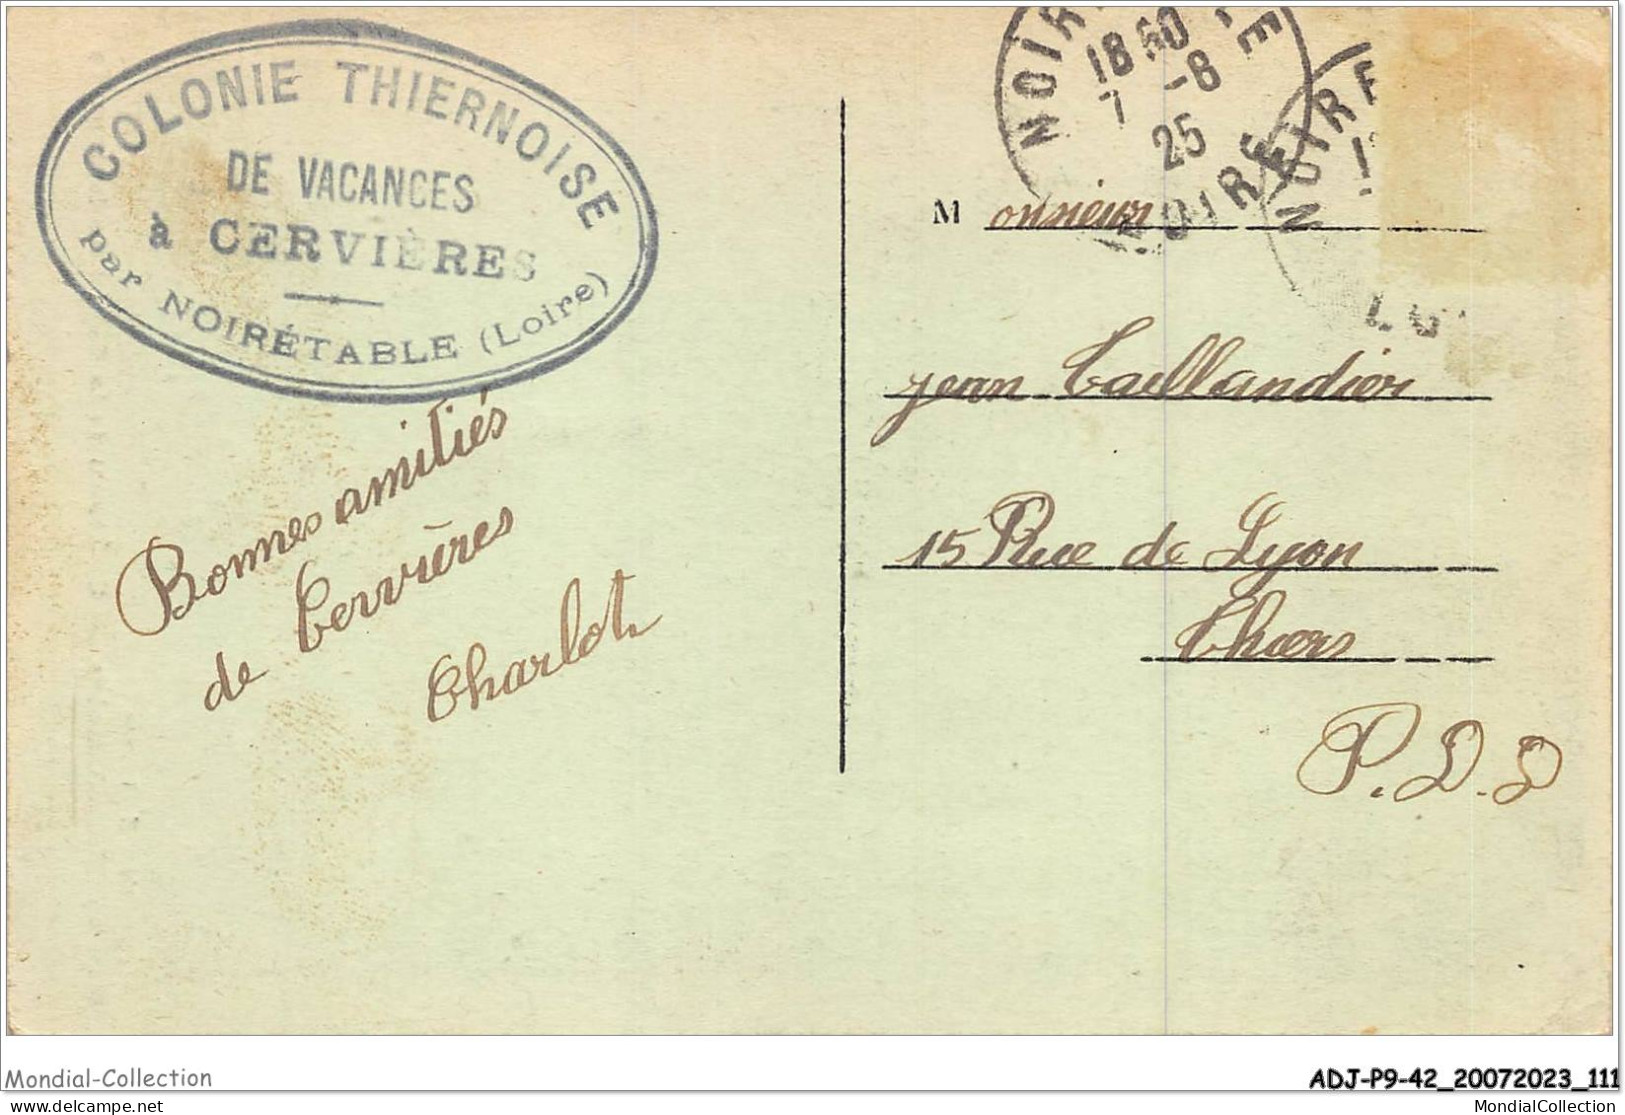 COLONIE THIERNOISE
DE VACANCES
à CERVIÈRES
par NOIRÉTABLE (Loire)
18 50
7 -8
25
LOIRE
NOIRE
Monsieur
jean Taillandier
15 Rue de Lyon
Thiers
P.D.D
Bonnes amitiés
de Cervières
Charlot
Mondial-Collection
ADJ-P9-42_20072023_111
www.delcampe.net
MondialCollection